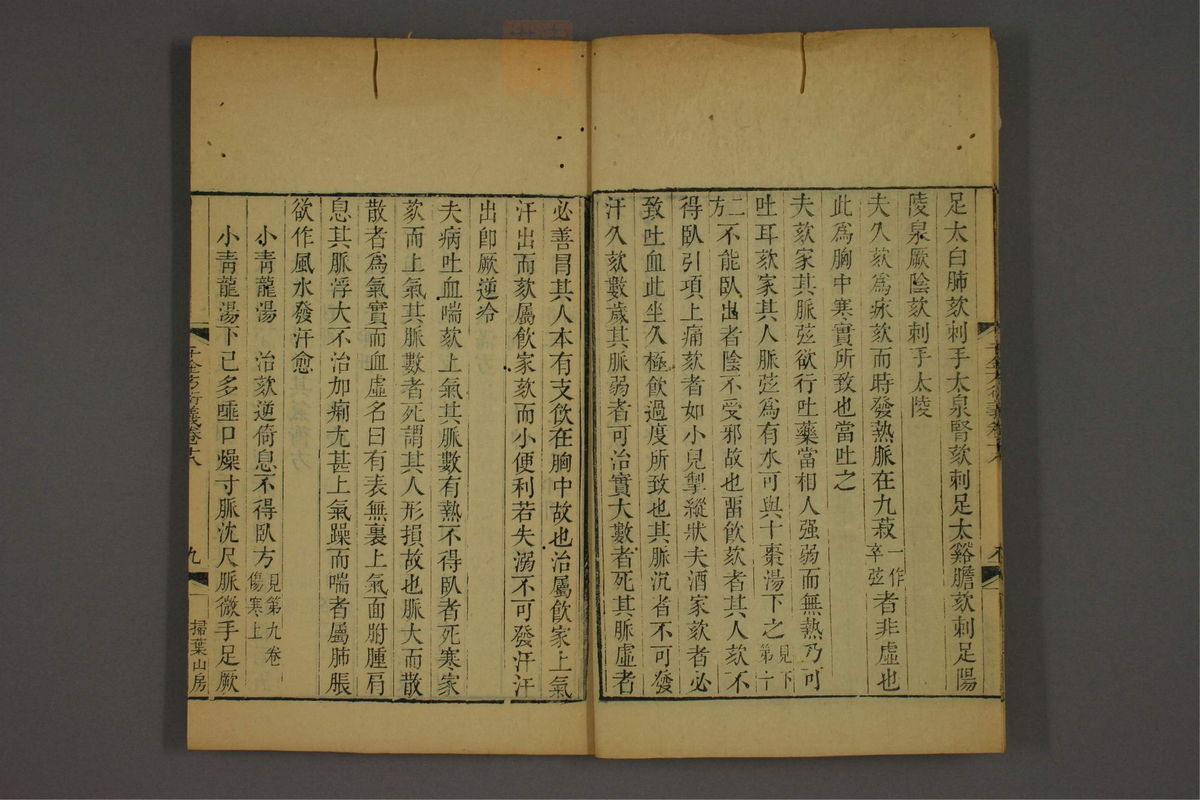 足太白肺欬刺手太泉腎欬刺足太谿膽欬刺足陽
陵泉厥陰欬刺手太陵
夫久欬爲疢欬而時發熱脈在九菽一作卒弦者非虛也
此爲胸中寒實所致也當吐之
夫欬家其脈弦欲行吐藥當相人强弱而無熱乃可
吐耳欬家其人脈弦爲有水可與十棗湯下之見下第十
二方不能臥出者陰不受邪故也畱飮欬者其人欬不
得臥引項上痛欬者如小兒掣縱狀夫酒家欬者必
致吐血此坐久極飮過度所致也其脈沉者不可發
汗久欬數歲其脈弱者可治實大數者死其脈虛者
必善冒其人本有支飮在胸中故也治屬飮家上氣
汗出而欬屬飮家欬而小便利若失溺不可發汗汗
出卽厥逆冷
夫病吐血喘欬上氣其脈數有熱不得臥者死寒家
欬而上氣其脈數者死謂其人形損故也脈大而散
散者爲氣實而血虛名曰有表無裏上氣面胕腫肩
息其脈浮大不治加痢尤甚上氣躁而喘者屬肺脹
欲作風水發汗愈
小靑龍湯 治欬逆倚息不得臥方見第九卷傷寒上
小靑龍湯下已多唾口燥寸脈沈尺脈微手足厥
千金方衍義卷十八
九
掃葉山房